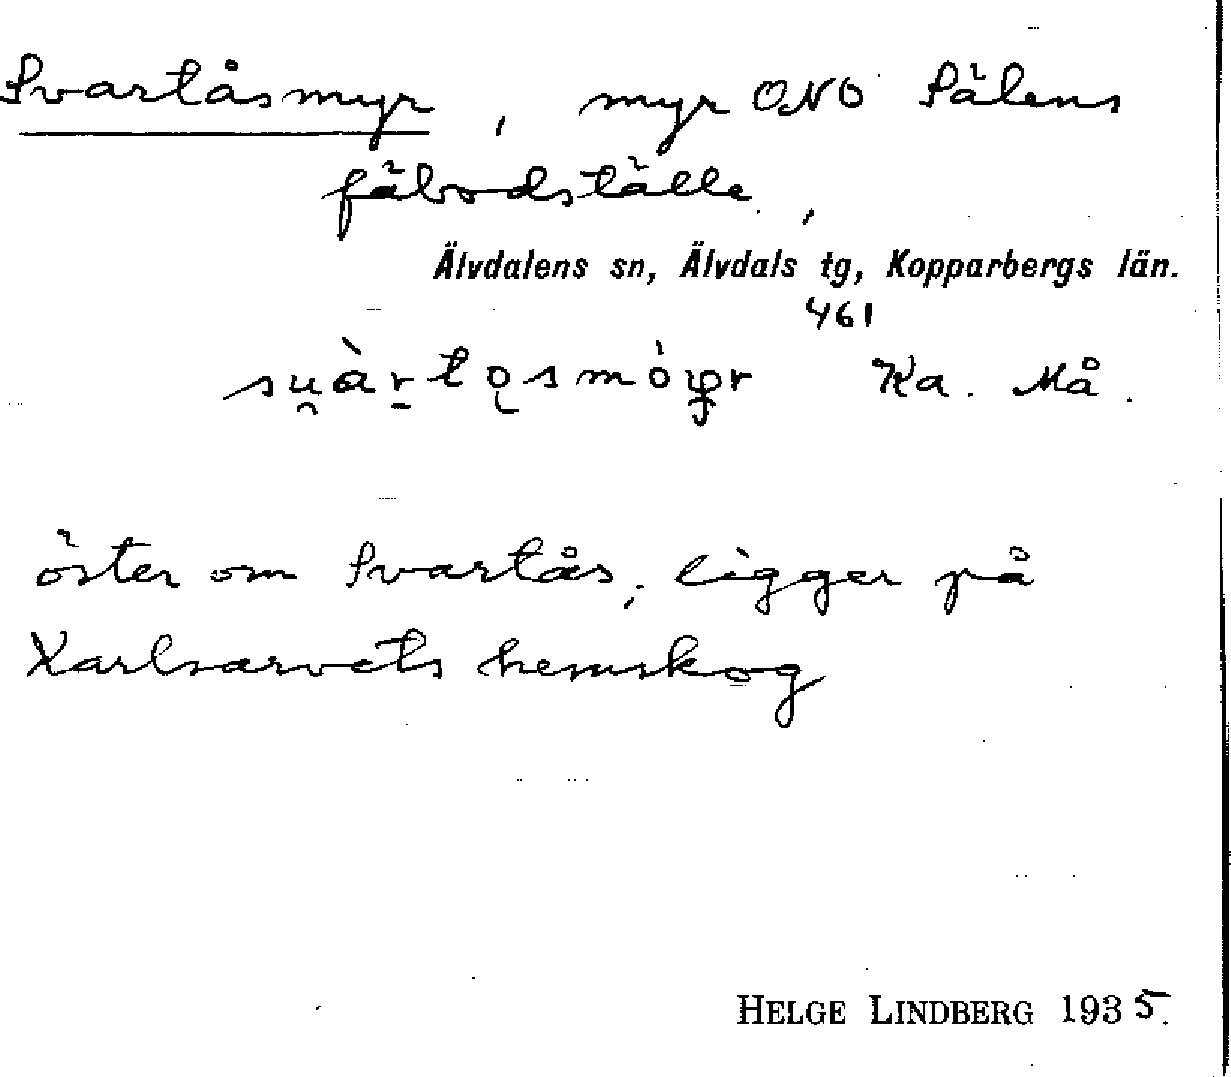 Svartåsmyr, myr ONO Sälens
fäbodställe,
Älvdalens sn, Älvdals tg, Kopparbergs län.
461
Ka. Må.
öster om Svartås, ligger på
Karlsarvets hemskog
HELGE LINDBERG 1935.